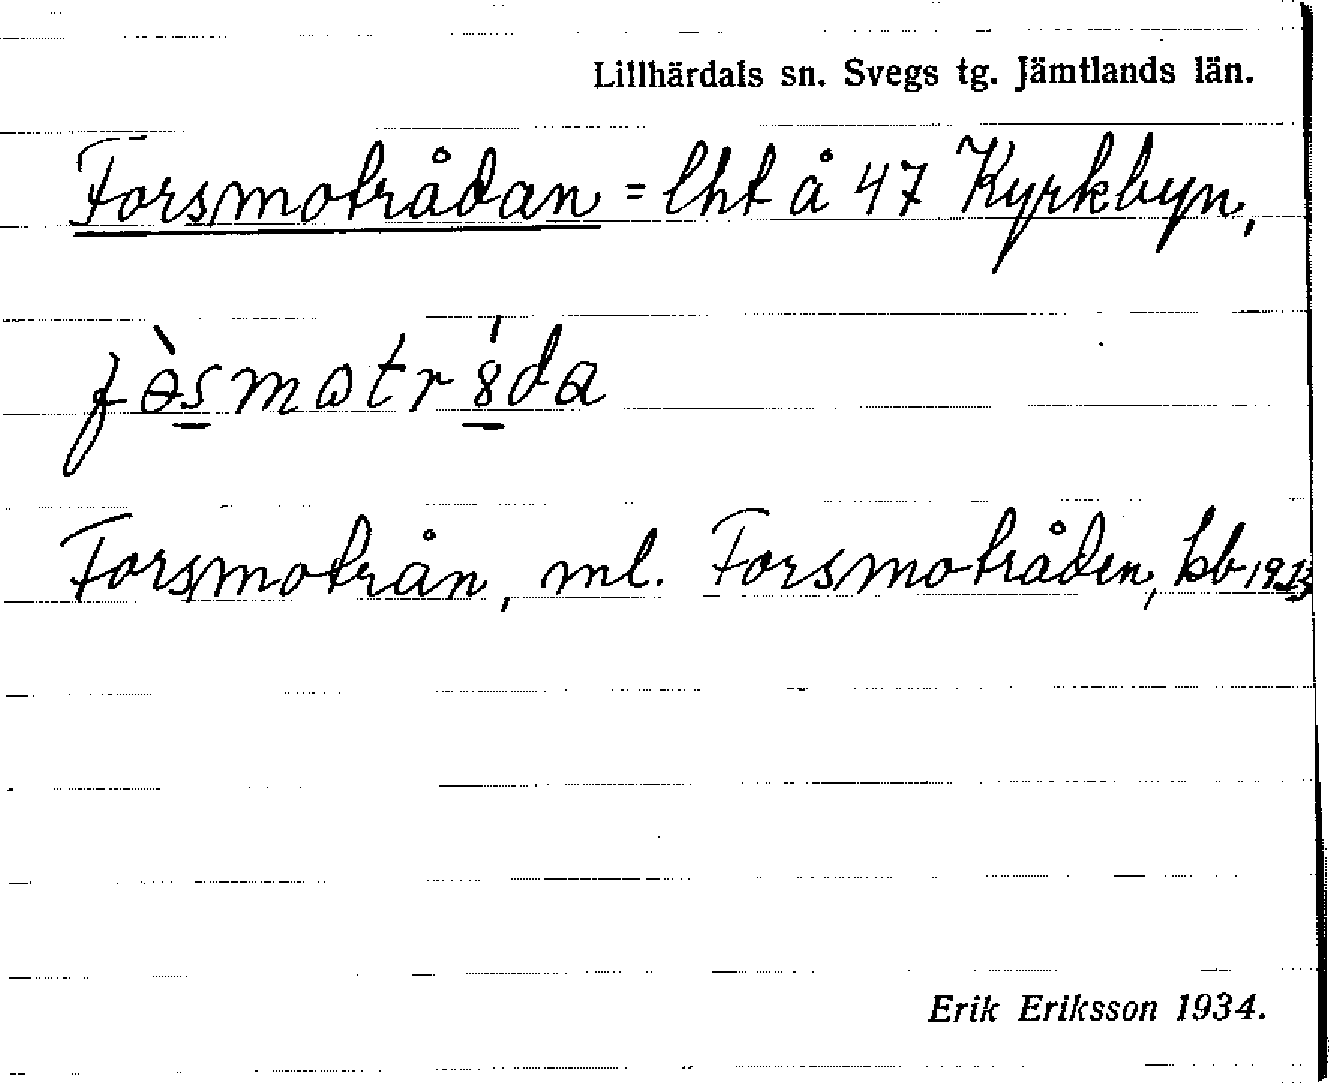 Lillhärdals sn. Svegs tg. Jämtlands län.
Forsmotrådan = lht å 47 Kyrkbyn,
fòsmotr8́da
Forsmotrån, ml. Forsmotråden, kb 1923
Erik Eriksson 1934.